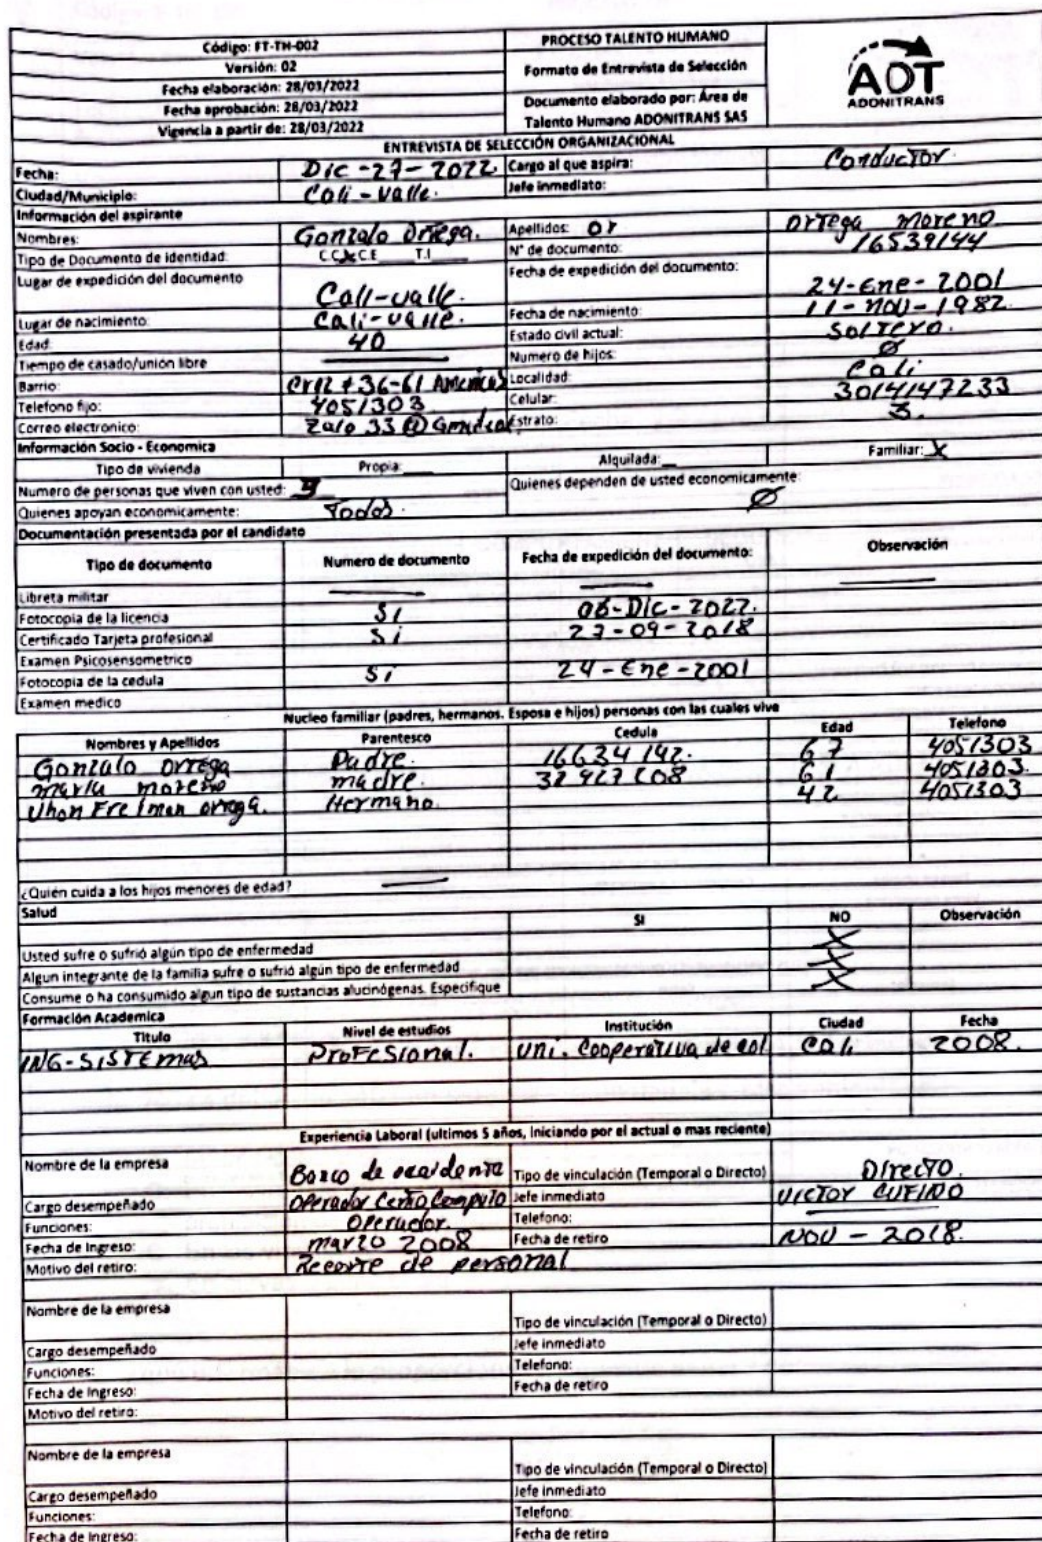 Código: FT-TH-002
Versión: 02
Fecha elaboración: 28/03/2022
Fecha aprobación: 28/03/2022
Vigencia a partir de: 28/03/2022
PROCESO TALENTO HUMANO
Formato de Entrevista de Selección
Documento elaborado por: Área de
Talento Humano ADONITRANS SAS
AOT
ADONITRANS
ENTREVISTA DE SELECCIÓN ORGANIZACIONAL
Fecha: Dic-27-2022. Cargo al que aspira: Conductor.
Ciudad/Municipio: Cali-valle. Jefe inmediato:
Información del aspirante
Nombres: Gonzalo Ortega. Apellidos: Or Ortega moreno
Tipo de Documento de identidad: C.C X C.E ___ T.I ___ N° de documento: 16539144
Lugar de expedición del documento Cali-valle. Fecha de expedición del documento: 24-Ene-2001
Lugar de nacimiento: Cali-valle. Fecha de nacimiento: 11-nov-1982
Edad: 40 Estado civil actual: Soltero.
Tiempo de casado/unión libre Numero de hijos: Ø
Barrio: Cr12 # 36-61 Americas Localidad: Cali
Telefono fijo: 4051303 Celular: 3014147233
Correo electronico: Zalo33@Gmail Estrato: 3.
Información Socio - Economica
Tipo de vivienda Propia: ___ Alquilada: __ Familiar: X
Numero de personas que viven con usted: Quienes dependen de usted economicamente: Ø
Quienes apoyan economicamente: Todos.
Documentación presentada por el candidato
Tipo de documento Numero de documento Fecha de expedición del documento: Observación
Libreta militar
Fotocopia de la licencia Si 06-Dic-2022.
Certificado Tarjeta profesional Si 27-09-2018
Examen Psicosensometrico
Fotocopia de la cedula Si 24-Ene-2001
Examen medico
Nucleo familiar (padres, hermanos. Esposa e hijos) personas con las cuales vive
Nombres y Apellidos Parentesco Cedula Edad Telefono
Gonzalo Ortega Padre. 16634142. 67 4051303
maria moreno madre. 61 4051303.
Jhon Freiman ortega. Hermano. 42 4051303
¿Quién cuida a los hijos menores de edad?
Salud
SI NO Observación
Usted sufre o sufrió algún tipo de enfermedad X
Algun integrante de la familia sufre o sufrió algún tipo de enfermedad X
Consume o ha consumido algun tipo de sustancias alucinógenas. Especifique X
Formación Academica
Titulo Nivel de estudios Institución Ciudad Fecha
ING-SISTEMAS Profesional. Uni. Cooperativa de col Cali 2008.
Experiencia Laboral (ultimos 5 años, iniciando por el actual o mas reciente)
Nombre de la empresa Banco de occidente Tipo de vinculación (Temporal o Directo) Directo.
Cargo desempeñado Operador Centro Computo Jefe inmediato VICTOR CUFIÑO
Funciones: Operador. Telefono:
Fecha de Ingreso: marzo 2008 Fecha de retiro NOV - 2018.
Motivo del retiro: Recorte de personal
Nombre de la empresa Tipo de vinculación (Temporal o Directo)
Cargo desempeñado Jefe inmediato
Funciones: Telefono:
Fecha de Ingreso: Fecha de retiro
Motivo del retiro:
Nombre de la empresa Tipo de vinculación (Temporal o Directo)
Cargo desempeñado Jefe inmediato
Funciones: Telefono:
Fecha de Ingreso: Fecha de retiro